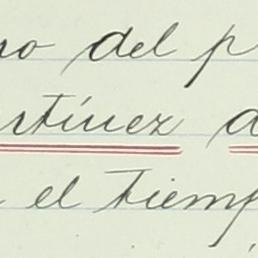 ro del p
rtínez d
el tiemp